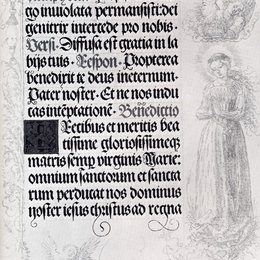 go inuiolata permansisti: dei
genitrix intercede pro nobis.
Versi. Diffusa est gratia in la
bijs tuis. Respon. Propterea
benedixit te deus ineternum.
Pater noster. Et ne nos indu
cas intēptationē. Benedictio
Precibus et meritis bea
tissime gloriosissimeqȝ
matris semp virginis Marie:
omnium sanctorum et sancta
rum perducat nos dominus
noster iesus christus ad regna